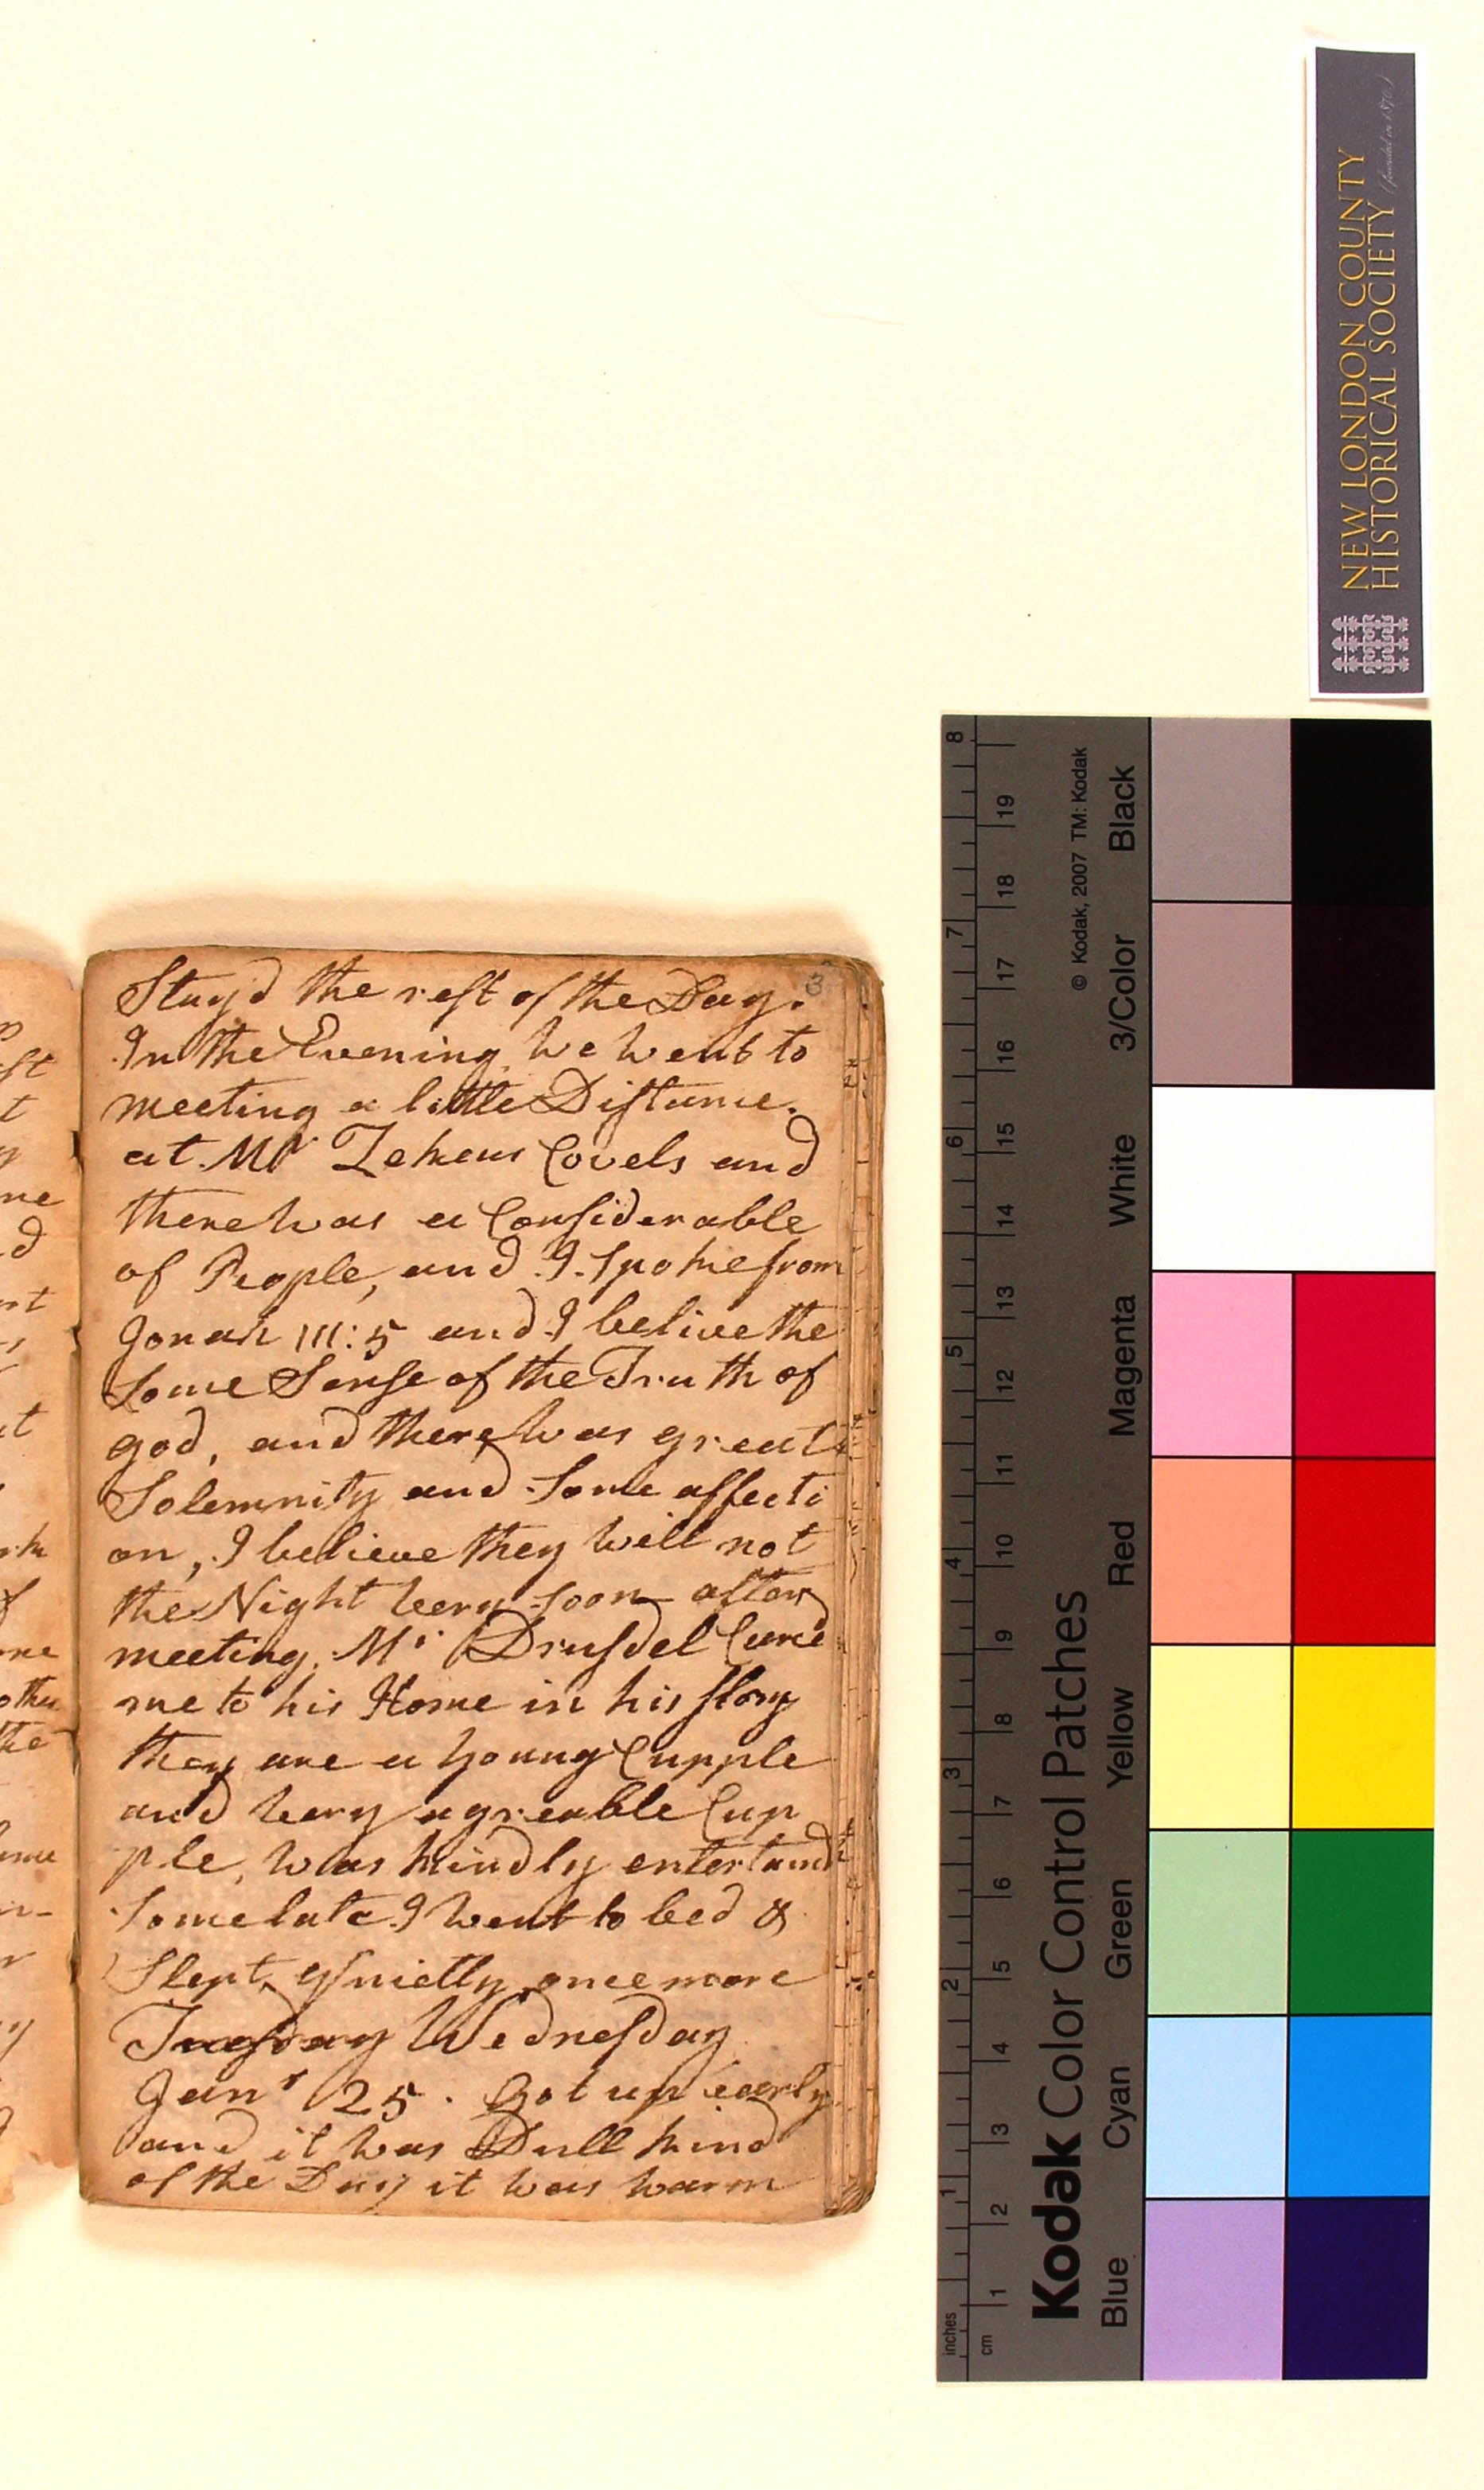 Stayd the rest of the Day.
In the Evening we went to
meeting a little Distance.
at Mr Zekeus Covels and
there was a Considerable
of People, and I Spoke from
Jonah III: 5 and I belive the
Some Sense of the Truth of
god, and there was great
Solemnity and Some affecti
on, I believe they will not
the Night very Soon after
meeting, Mr
me to his Home in his
they are a young Cupple
and very agreable Cup
ple, was kindly entertaind
Some late I went to bed &
Slept, quietly once more
Tuesday Wednesday
Janr 25. got up early
and it was Dull kind
of the Day it was warm
3
NEW LONDON COUNTY
HISTORICAL SOCIETY (founded in 1870)
Kodak Color Control Patches
© Kodak, 2007 TM: Kodak
Blue Cyan Green Yellow Red Magenta White 3/Color Black
inches 1 2 3 4 5 6 7 8
cm 1 2 3 4 5 6 7 8 9 10 11 12 13 14 15 16 17 18 19